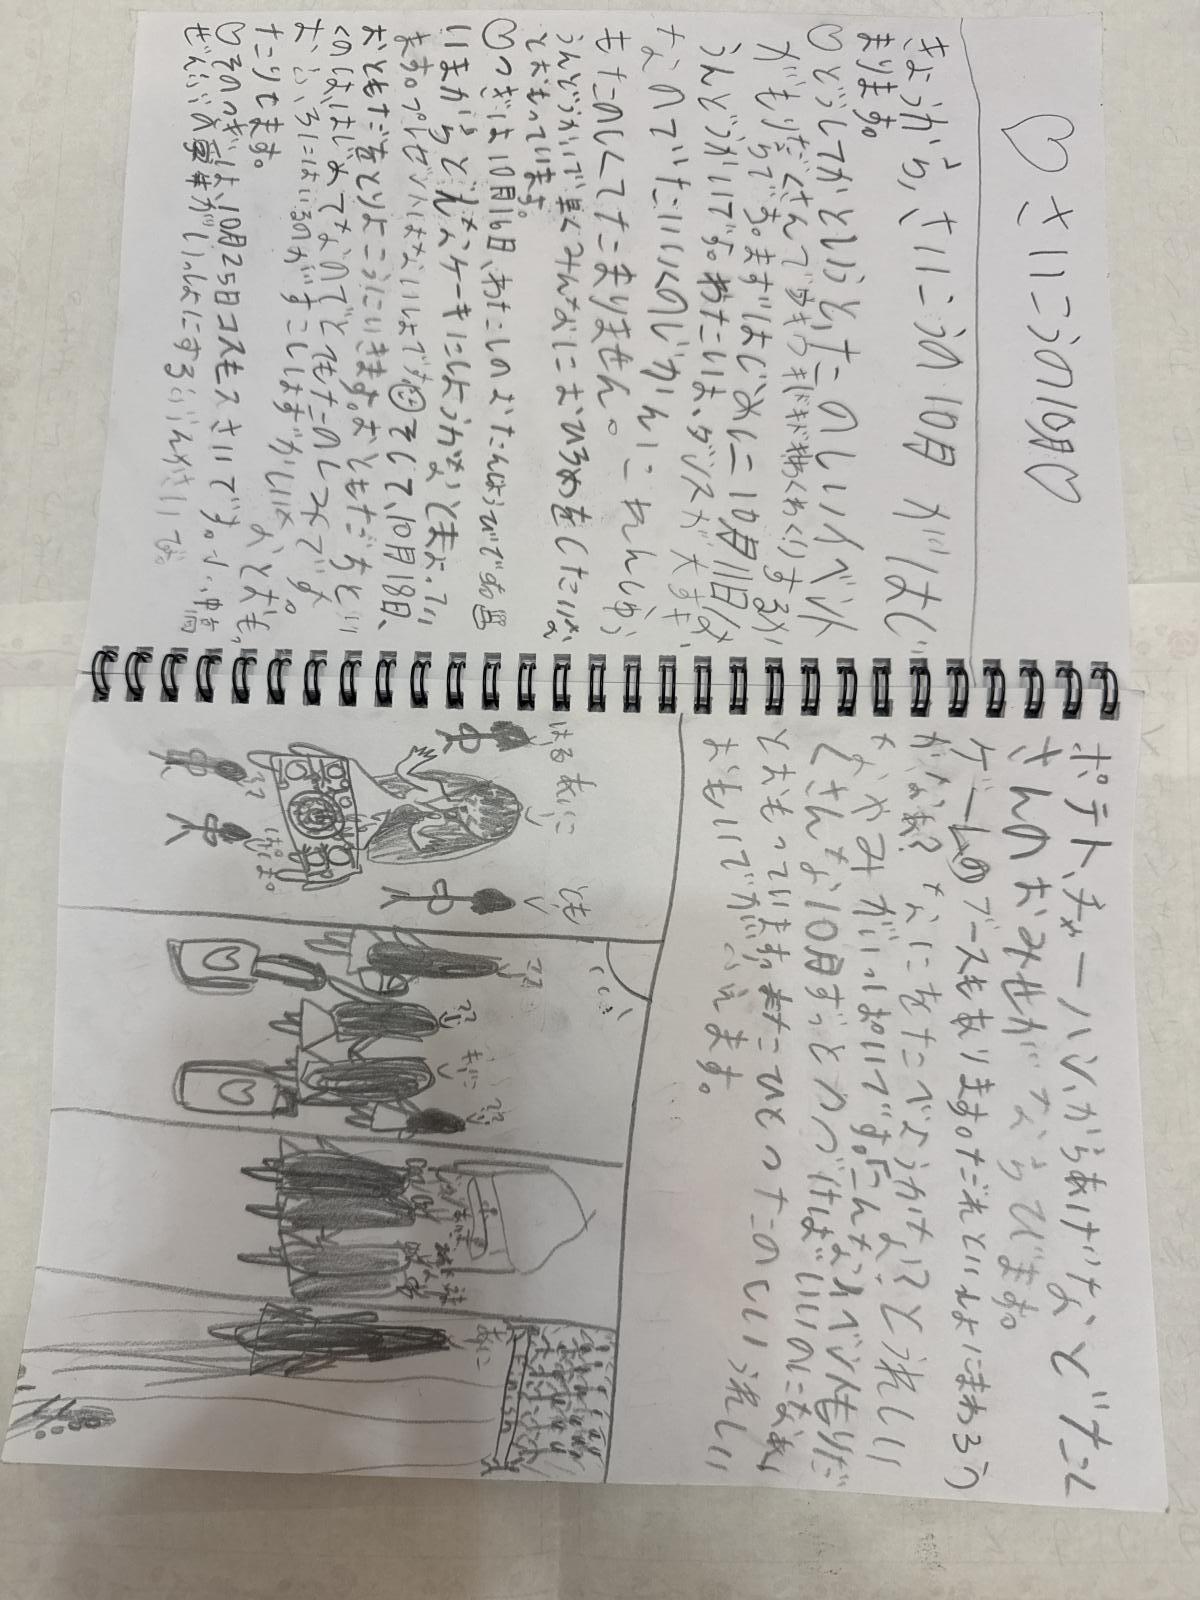 ♡さいこうの10月♡
きょうから、さいこうの10月がはじ
まります。
♡どうしてかというとたのしいイベント
がもりだくさんでウキウキドキドキわくわくするか
らです。まずはじめに10月11日は
うんどうかいです。わたしは、ダンスが大すき
なのでたいいくのじかんにれんしゅう
もたのしくてたまりません。
うんどうかいで早くみんなにおひろめをしたいな
とおもっています。
♡つぎは10月16日、わたしのおたんじょうびです
いまからどんなケーキにしようかなとまよってい
ます。プレゼントはないしょです そして、10月18日、
おともだちとりょこうにいきます。おともだちとい
くのははじめてなのでとてもたのしみです
おふろにはいるのがすこしはずかしいな、とおもっ
たりもます。
♡そのつぎは、10月25日コスモスさいです。小、中高
ぜんぶの学年がいっしょにするぶんかさいです。
ポテト、チャーハン、からあげなどたく
さんのおみせがならびます。
ゲームのブースもあります。だれといっしょにまわろう
かなぁ? なにをたべようかな?とうれしい
なやみがいっぱいです。こんなイベントもりだ
くさんな10月ずっとつづけばいいのになぁ
とおもっています。またひとつたのしいうれしい
おもいでがふえます。
はる あいこ
とも
ここ
ぱぱ
ここ
ここ
あいこ
あいこ
Finish